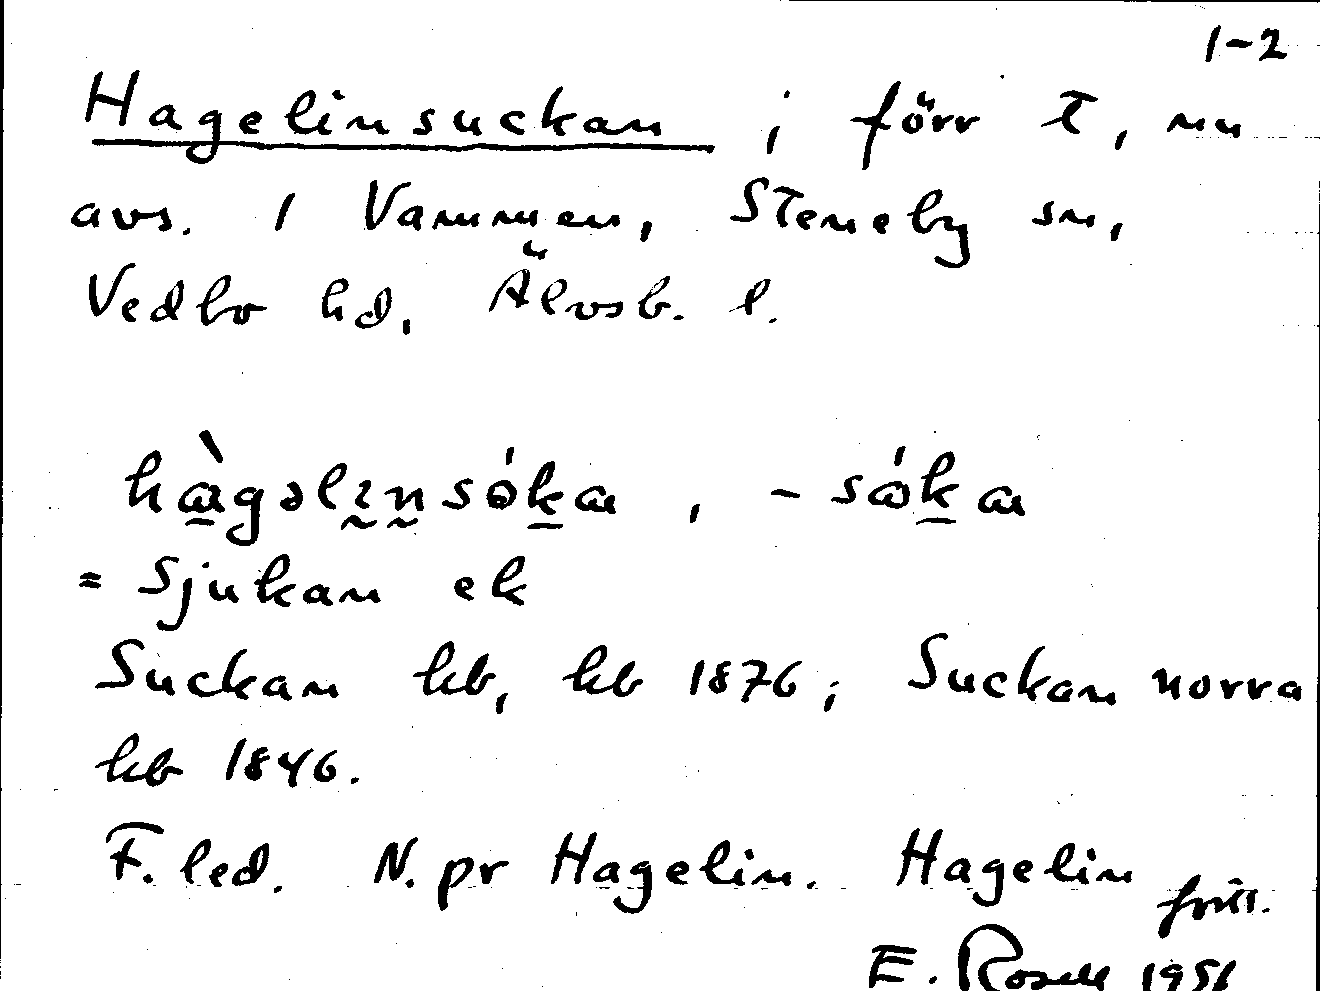 1-2
Hagelinsuckan ; förr t, nu
avs. / Vammen, Steneby sn,
Vedbo hd, Älvsb. l.
hàgəlınsóka, -såka
= Sjukan ek
Suckan kb, kb 1876; Suckan norra
kb 1846.
F. led. N. pr Hagelin. Hagelin
E. Rosell 1956